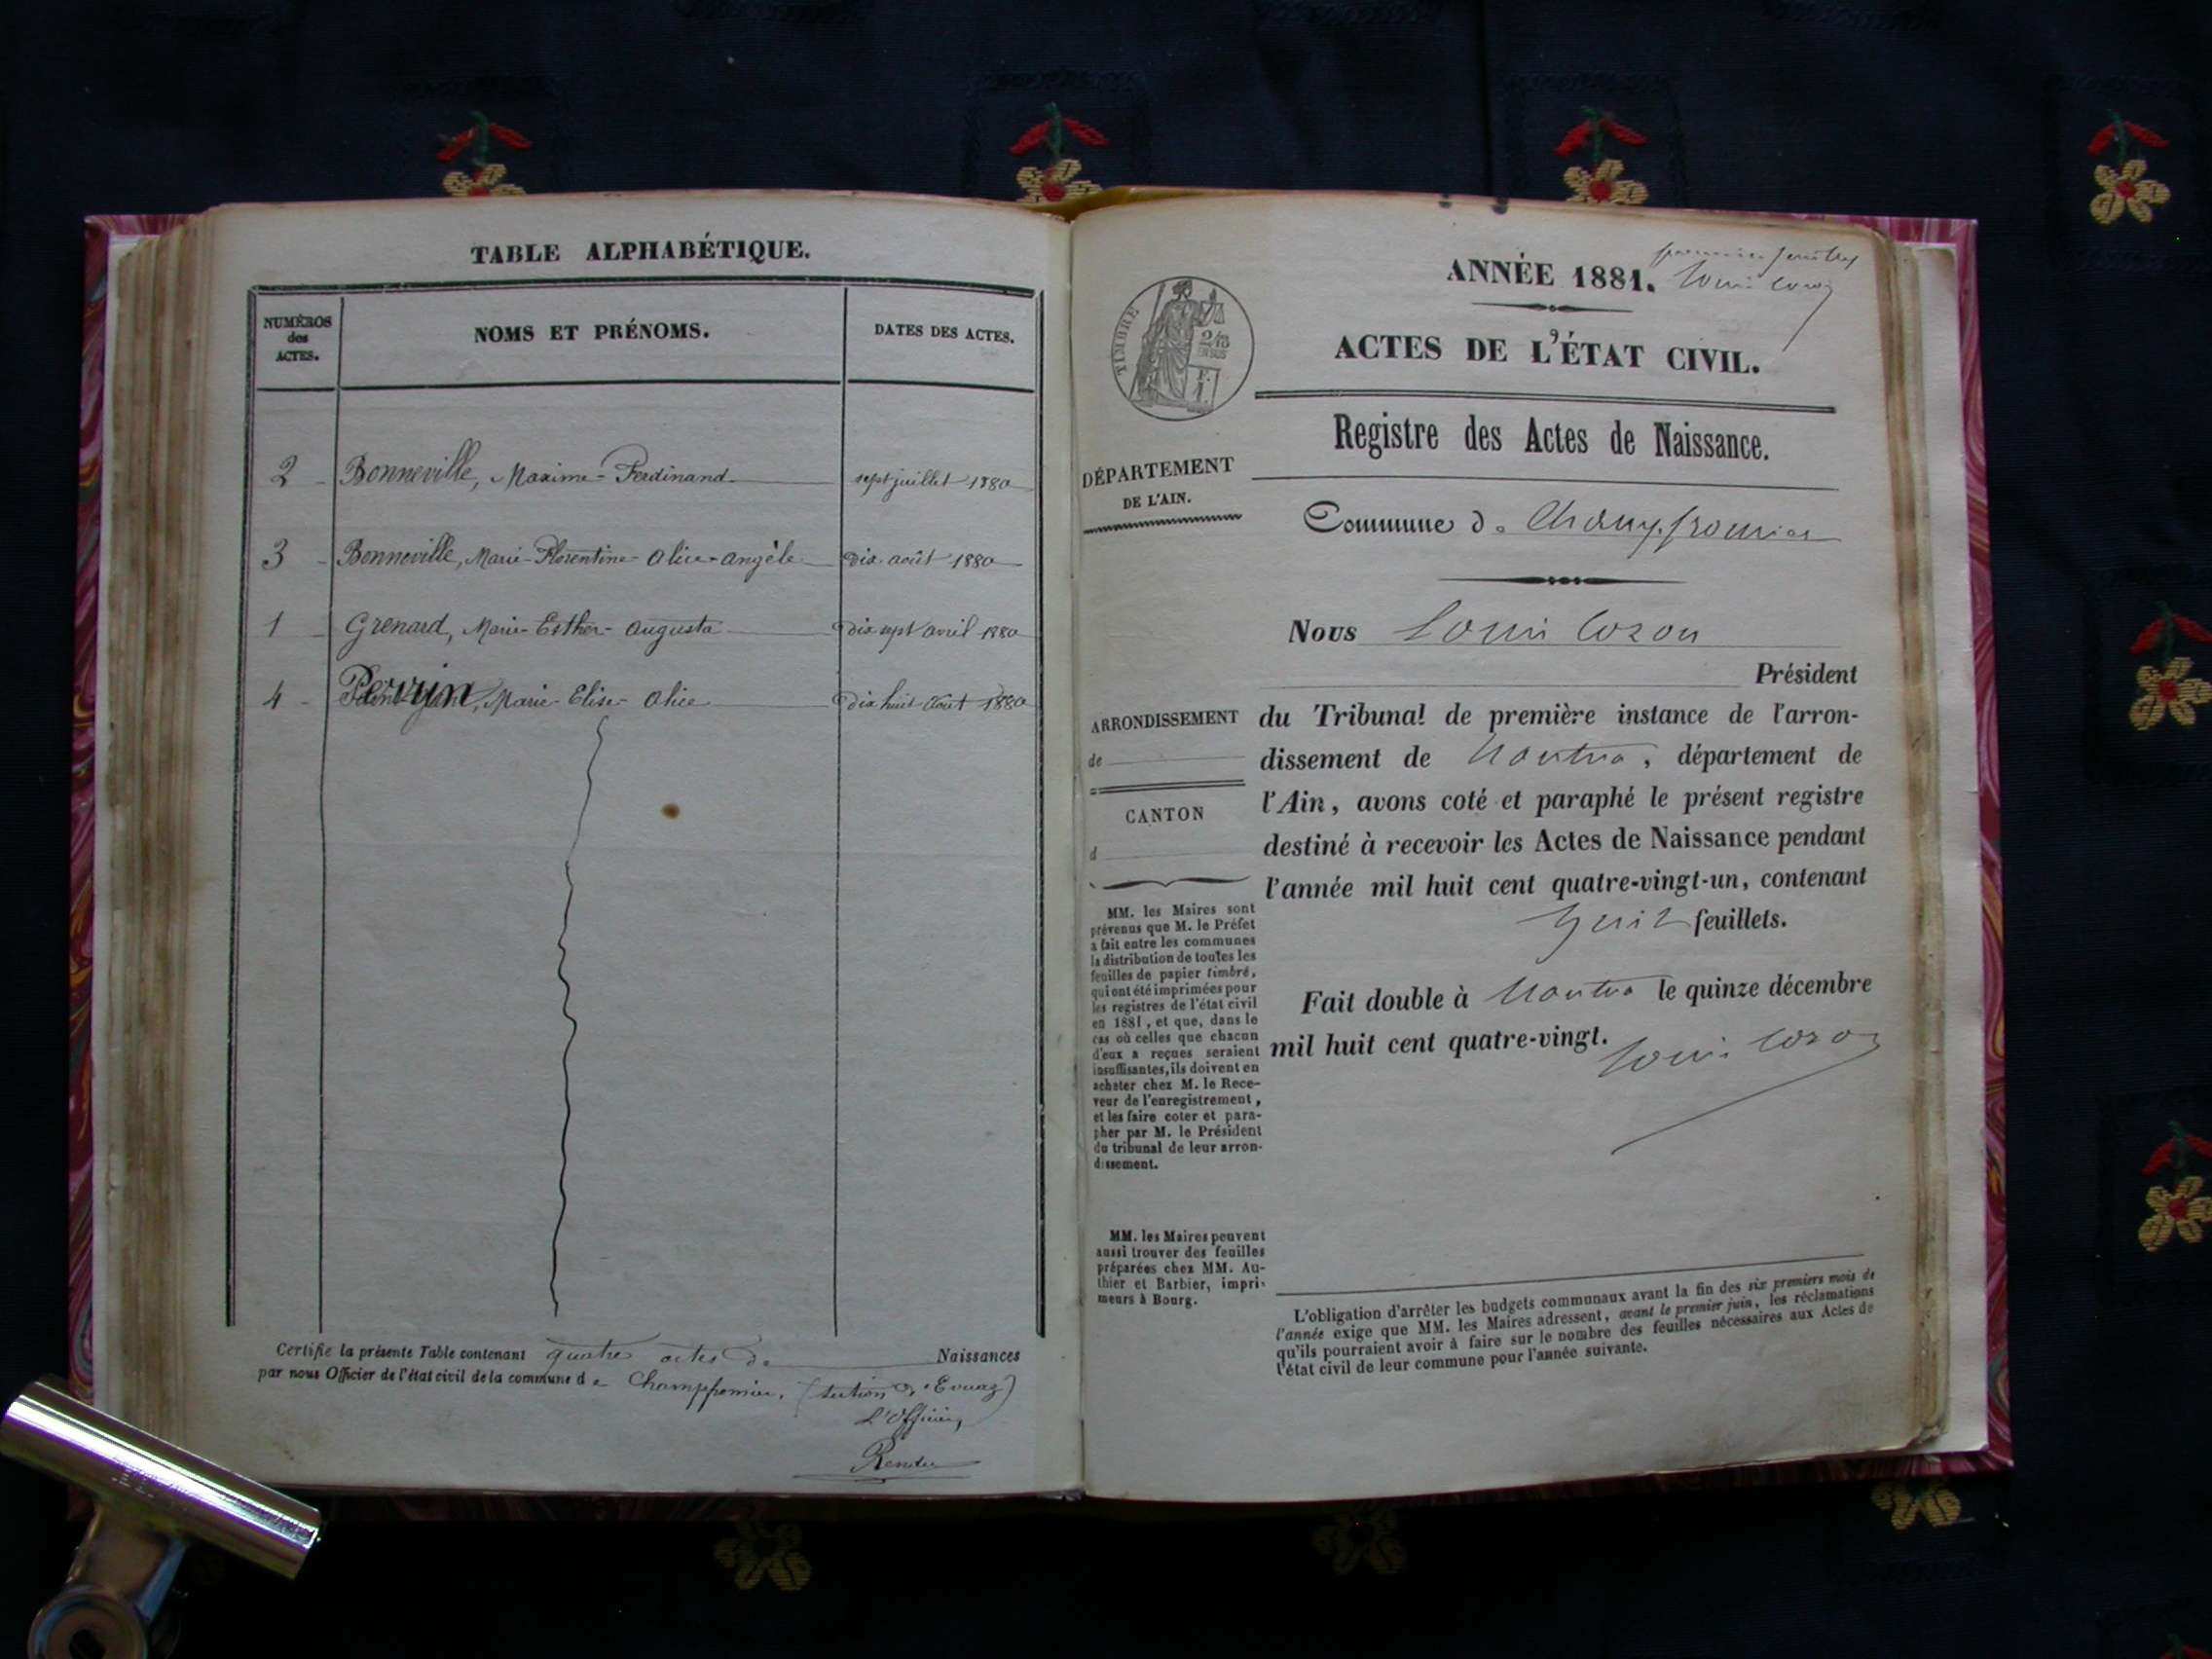 TABLE ALPHABÉTIQUE.
NUMÉROS
des
ACTES.
NOMS ET PRÉNOMS.
DATES DES ACTES.
2 Bonneville, Maxime-Ferdinand sept juillet 1880
3 Bonneville, Marie-Florentine-Alice-Angèle dix août 1880
1 Grenard, Marie-Esther-Augusta dix sept avril 1880
4 Perrin, Marie-Elise-Alice dix huit août 1880
Certifie la présente Table contenant quatre actes de Naissances
par nous Officier de l'état civil de la commune de Champfromier, (section d'Evuaz)
L'Officier,
Rendu
premier feuillet
ANNÉE 1881. Louis Cozon
TIMBRE
ACTES DE L'ÉTAT CIVIL.
Registre des Actes de Naissance.
DÉPARTEMENT
DE L'AIN.
Commune de Champfromier
Nous Louis Cozon
Président
ARRONDISSEMENT
de
CANTON
d
du Tribunal de première instance de l'arron-
dissement de Nantua, département de
l'Ain, avons coté et paraphé le présent registre
destiné à recevoir les Actes de Naissance pendant
l'année mil huit cent quatre-vingt-un, contenant
huit feuillets.
Fait double à Nantua le quinze décembre
mil huit cent quatre-vingt.
Louis Cozon
MM. les Maires sont
prévenus que M. le Préfet
a fait entre les communes
la distribution de toutes les
feuilles de papier timbré,
qui ont été imprimées pour
les registres de l'état civil
en 1881, et que, dans le
cas où celles que chacun
d'eux a reçues seraient
insuffisantes, ils doivent en
acheter chez M. le Rece-
veur de l'enregistrement,
et les faire coter et para-
pher par M. le Président
du tribunal de leur arron-
dissement.
MM. les Maires peuvent
aussi trouver des feuilles
préparées chez MM. Au-
thier et Barbier, impri-
meurs à Bourg.
L'obligation d'arrêter les budgets communaux avant la fin des six premiers mois de
l'année exige que MM. les Maires adressent, avant le premier juin, les réclamations
qu'ils pourraient avoir à faire sur le nombre des feuilles nécessaires aux Actes de
l'état civil de leur commune pour l'année suivante.